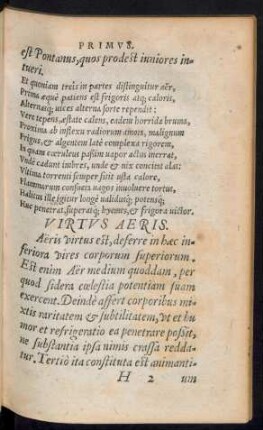 PRIMVS.
est Pontanus, quos prodest iuniores in-
tueri.
Et quoniam treis in partes distinguitur aër,
Prima æquè patiens est frigoris atq; caloris,
Alternatq; uices alterna sorte rependit:
Vere tepens, æstate calens, eadem horrida bruma,
Proxima ab inflexu radiorum omnis, malignum
Frigus, & algentem latè complexa rigorem,
In quam cœruleus passim uapor actus inerrat,
Vnde cadunt imbres, unde & nix concitat alat:
Vltima torrenti semper sitit usta calore,
Flammarum consueta uagos inuoluere tortus,
Halitus ille igitur longè ualidusq; potensq;
Huc penetrat, superatq; hyemes, & frigora uictor.
VIRTVS AERIS.
Aëris virtus est, deferre in hæc in-
feriora vires corporum superiorum.
Est enim Aër medium quoddam, per
quod sidera cœlestia potentiam suam
exercent. Deinde assert corporibus mi-
xtis raritatem & subtilitatem, vt et hu
mor et refrigeratio ea penetrare possit,
ne substantia ipsa nimis crassa redda-
tur. Tertiò ita constituta est animanti-
H 2 um